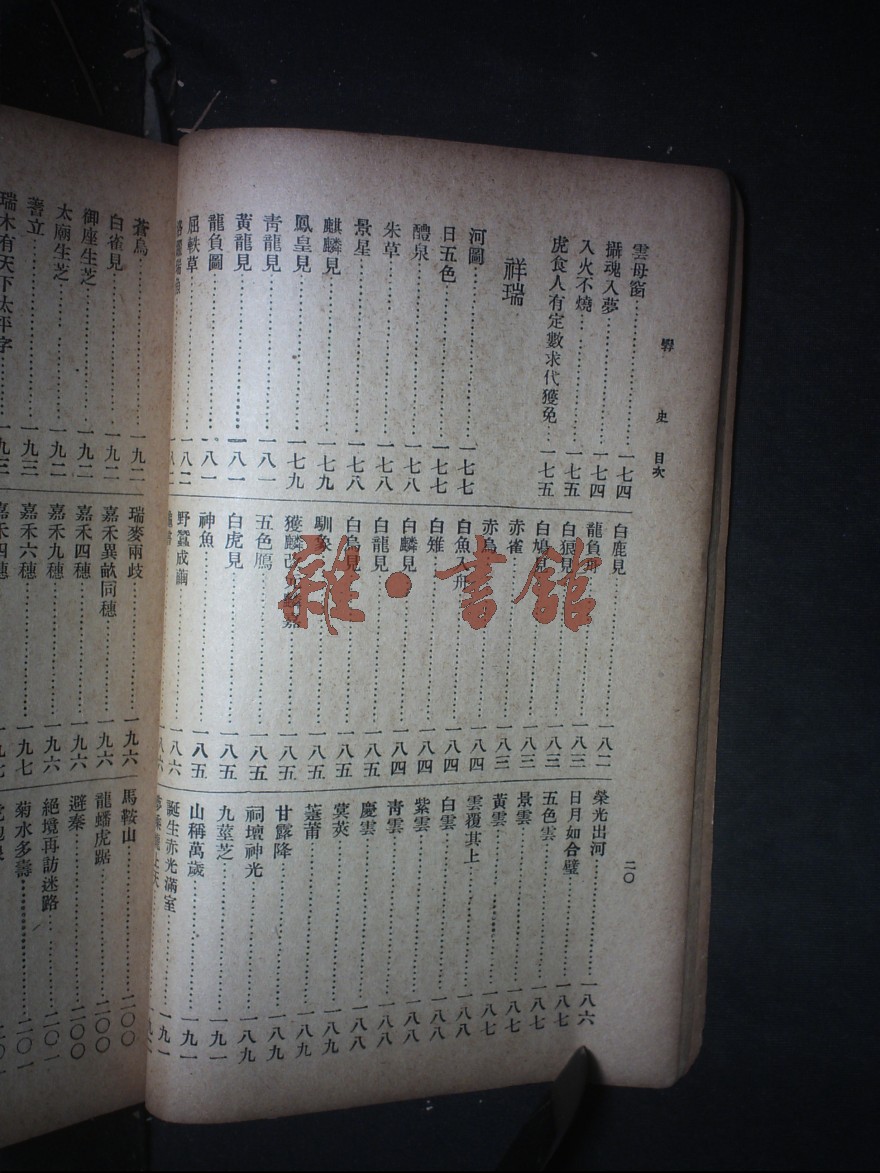 史 目次
二〇
雲母窗 一七四
攝魂入夢 一七四
入火不燒 一七五
虎食人有定數求代獲免 一七五
祥瑞
河圖 一七七
日五色 一七七
醴泉 一七八
朱草 一七八
景星 一七八
麒麟見 一七九
鳳皇見 一七九
青龍見 一八一
黃龍見 一八一
龍負圖 一八一
屈軼草 一八二
白鹿見 一八二
龍負舟 一八三
白狼見 一八三
白鳩見 一八三
赤雀 一八三
赤烏 一八四
白魚入舟 一八四
白雉 一八四
白麟 一八四
白龍見 一八五
白烏見 一八五
馴象 一八五
獲麟改 一八五
五色鴈 一八五
白虎見 一八五
神魚 一八五
野蠶成繭 一八六
榮光出河 一八六
日月如合璧 一八七
五色雲 一八七
景雲 一八七
黃雲 一八七
雲覆其上 一八八
白雲 一八八
紫雲 一八八
青雲 一八八
慶雲 一八八
蓂莢 一八九
萐莆 一八九
甘露降 一八九
祠壇神光 一八九
九莖芝 一九一
山稱萬歲 一九一
誕生赤光滿室 一九一
蒼烏 一九二
白雀見 一九二
御座生芝 一九二
太廟生芝 一九二
蓍立 一九三
瑞木有天下太平字 一九三
瑞麥兩歧 一九六
嘉禾異畝同穗 一九六
嘉禾四穗 一九六
嘉禾九穗 一九六
嘉禾六穗 一九七
嘉禾四穗 一九七
馬鞍山 二〇〇
龍蟠虎踞 二〇〇
避秦 二〇〇
絕境再訪迷路 二〇一
菊水多壽 二〇一
雜·書館